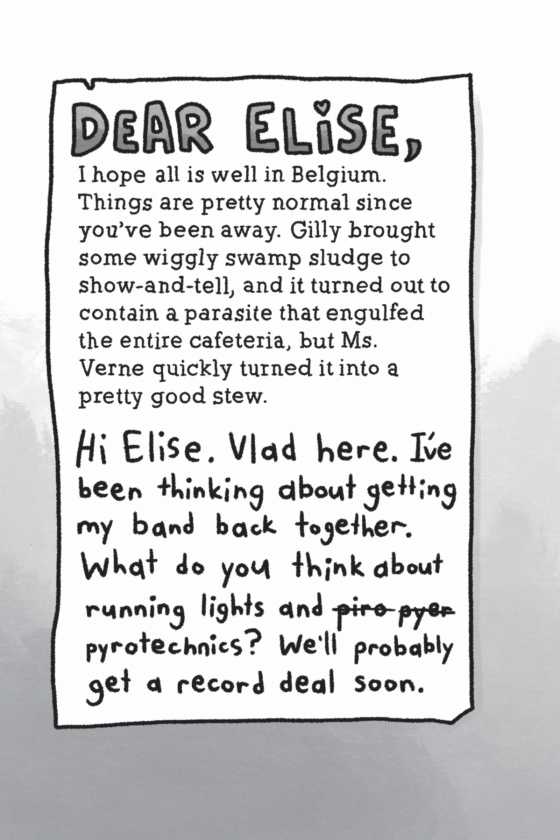 DEAR ELiSE,
I hope all is well in Belgium.
Things are pretty normal since
you've been away. Gilly brought
some wiggly swamp sludge to
show-and-tell, and it turned out to
contain a parasite that engulfed
the entire cafeteria, but Ms.
Verne quickly turned it into a
pretty good stew.
Hi Elise. Vlad here. I've
been thinking about getting
my band back together.
What do you think about
running lights and piro pyer
pyrotechnics? We'll probably
get a record deal soon.